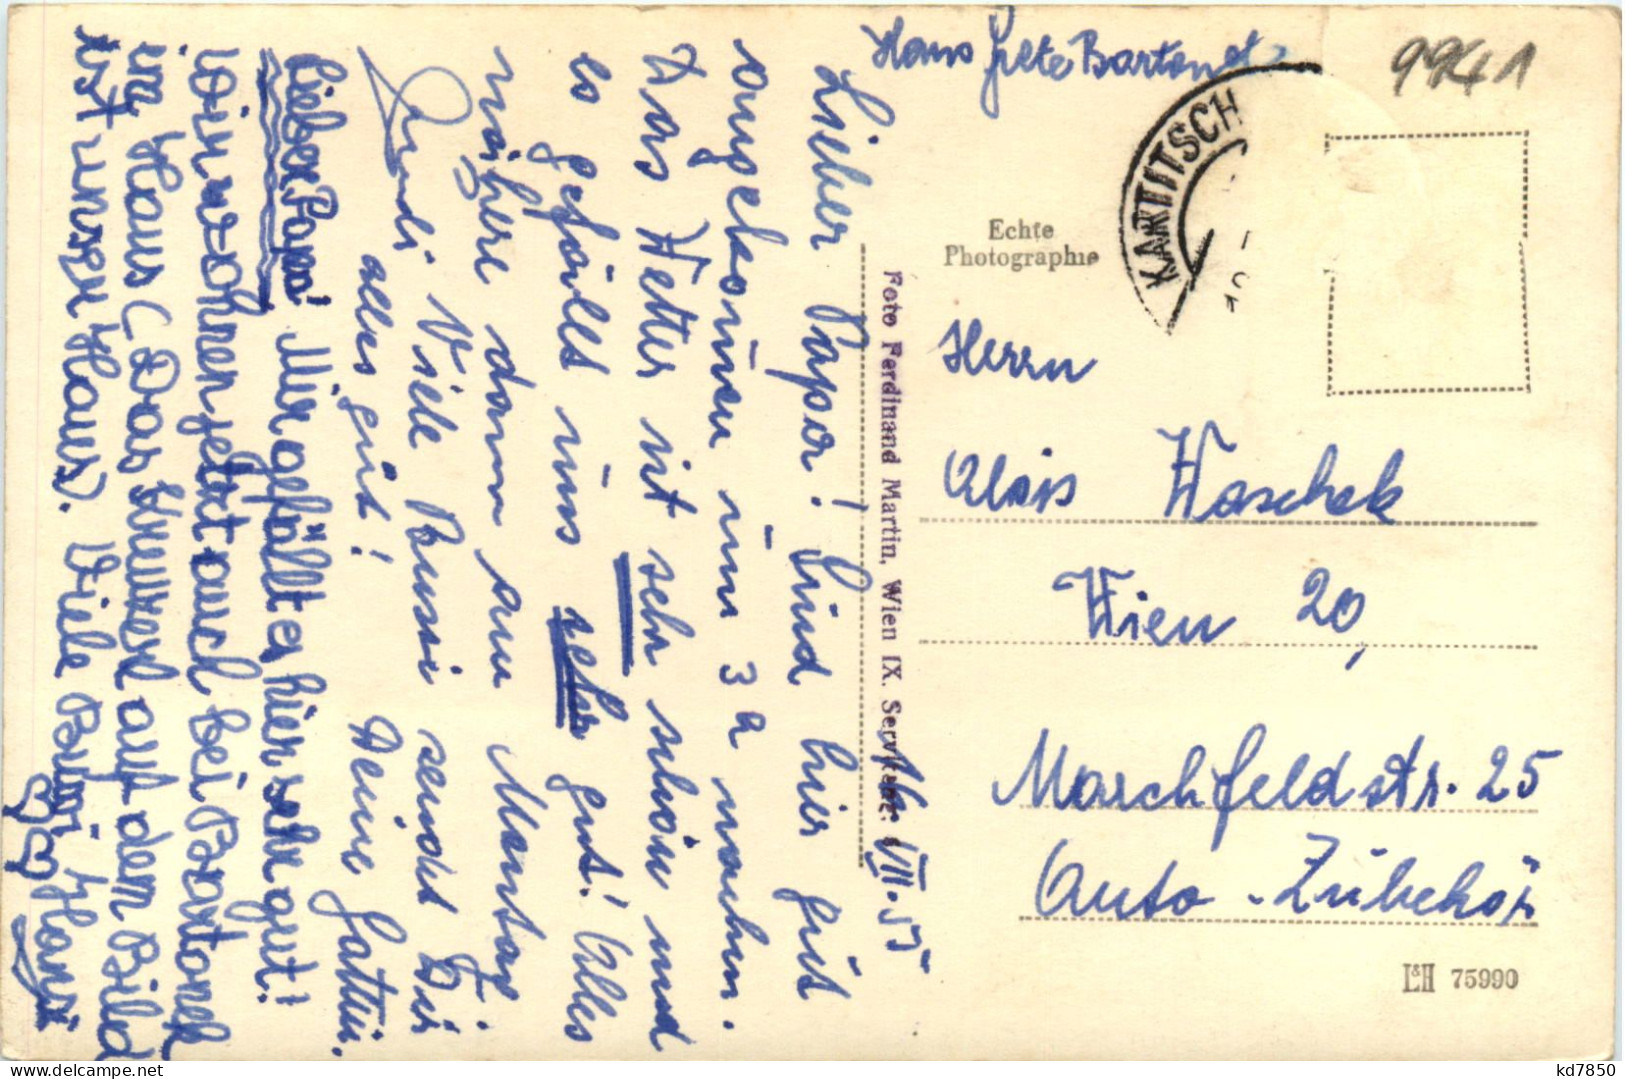 Hans Grete Bartonek
9941
KARTITSCH
Echte
Photographie
Herrn
Alois Waschek
Wien 20,
Marchfeldstr. 25
Auto-Zubehör
L&H 75990
Foto Ferdinand Martin, Wien IX. Servi
VII. 55
Lieber Papa! Sind hier gut
angekommen um 3 h nachm.
Das Wetter ist sehr schön und
es gefällt uns sehr gut! Alles
nähere dann am Montag.
Viele Bussi sendet Dir
alles gut! Deine Gattin.
Lieber Papa! Mir gefällt es hier sehr gut!
Wir wohnen jetzt auch bei Bartonek
im Haus (Das Kreuzerl auf dem Bild
ist unser Haus). Viele Bussi Hansi
kd7850